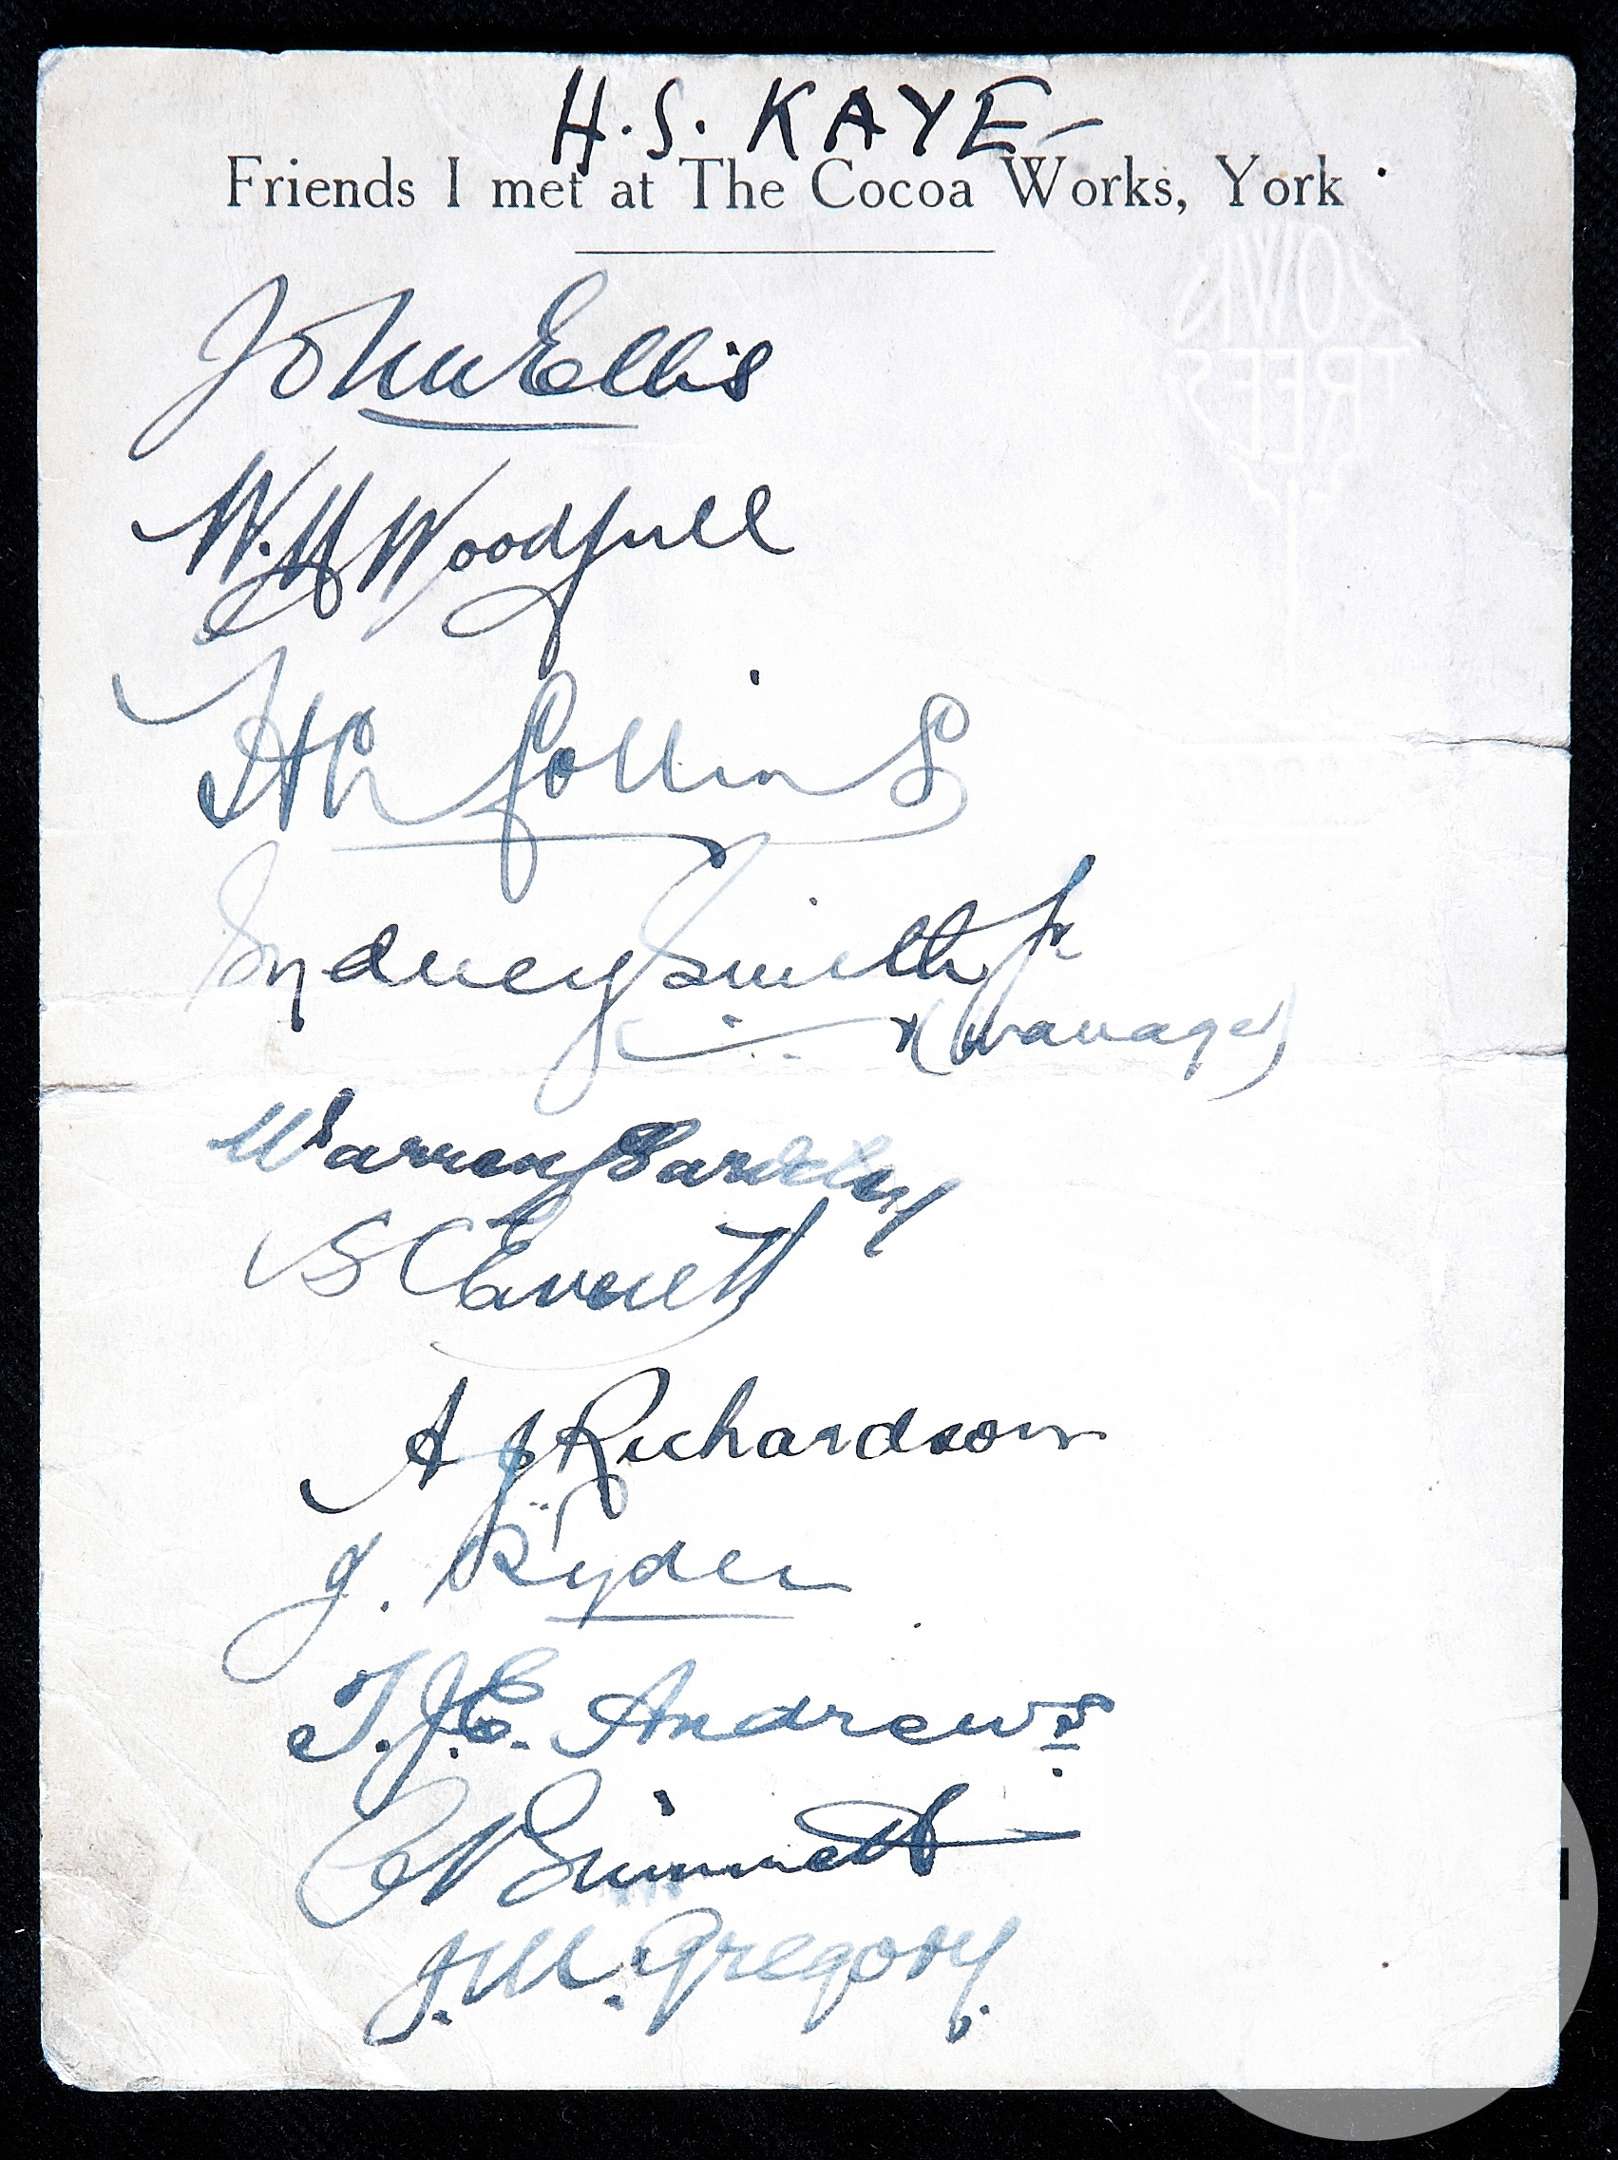 H. S. KAYE
Friends I met at The Cocoa Works, York
John Ellis
W. H Woodfull
H C Collins
Sydney Smith Jr
(Manager)
Warren Bardsley
S C Everett
A J Richardson
J. Ryder
T. J. E. Andrews
ROWN
TREES
J. M. Gregory.